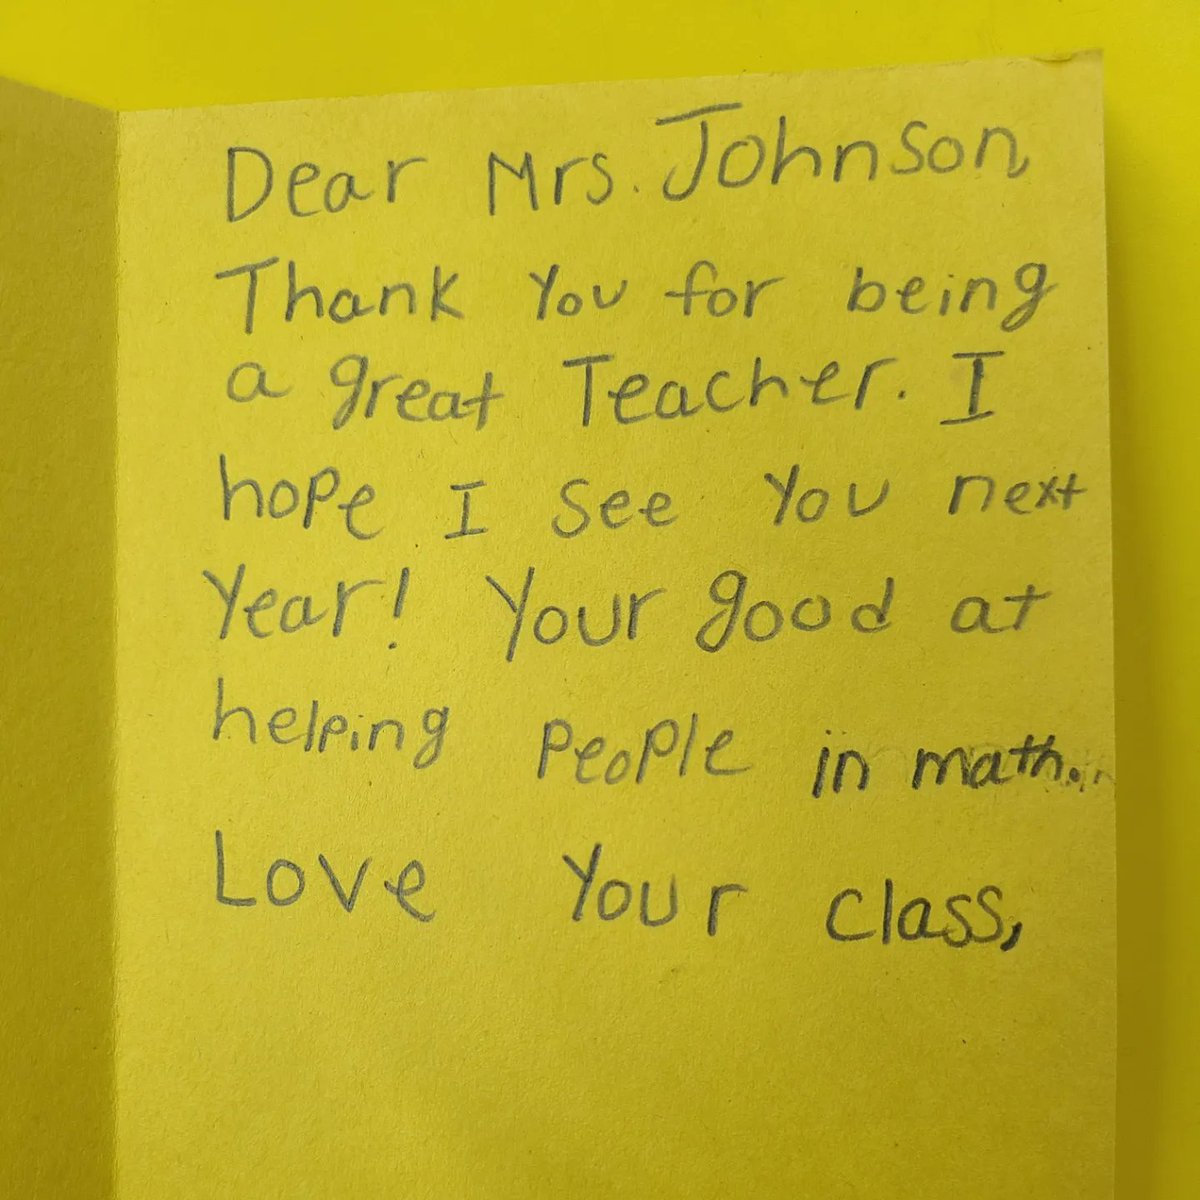 Dear Mrs. Johnson,
Thank You for being
a great Teacher. I
hope I see You next
Year! Your good at
helping People in math.
Love Your class,